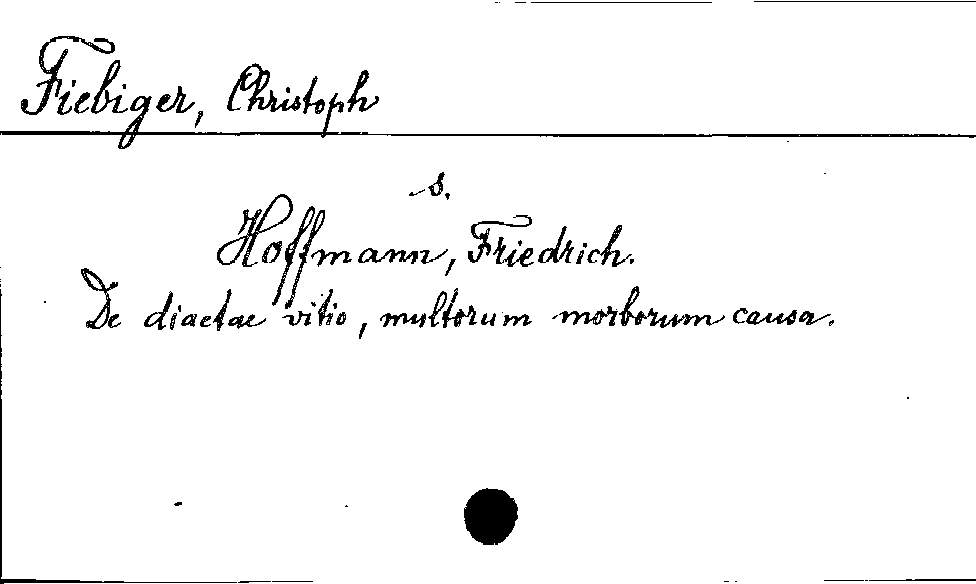 Fiebiger, Christoph
s.
Hoffmann, Friedrich.
De diaetae vitio, multorum morborum causa.